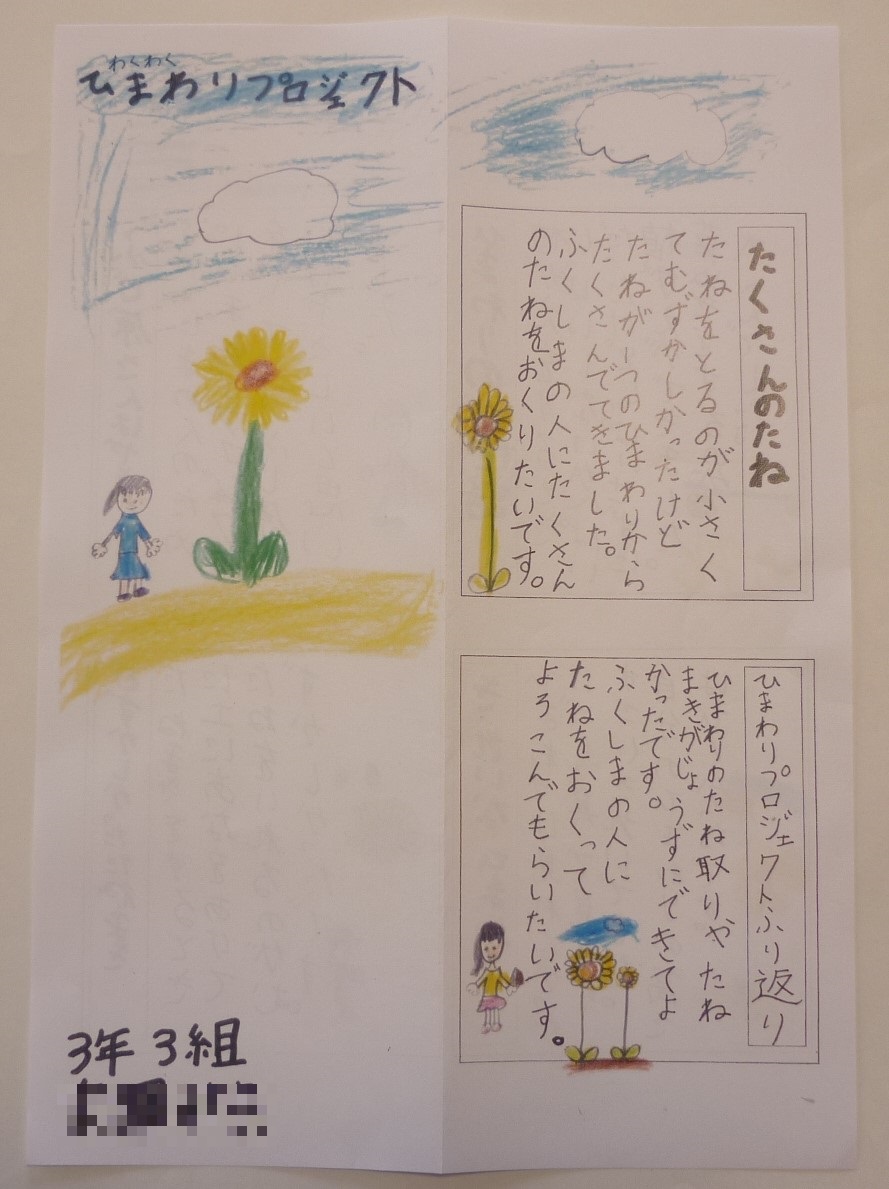 わくわく
ひまわりプロジェクト
3年3組
たくさんのたね
たねをとるのが小さく
てむずかしかったけど
たねが一つのひまわりから
たくさんでてきました。
ふくしまの人にたくさん
のたねをおくりたいです。
ひまわりプロジェクトふり返り
ひまわりのたね取りやたね
まきがじょうずにできてよ
かったです。
ふくしまの人に
たねをおくって
よろこんでもらいたいです。